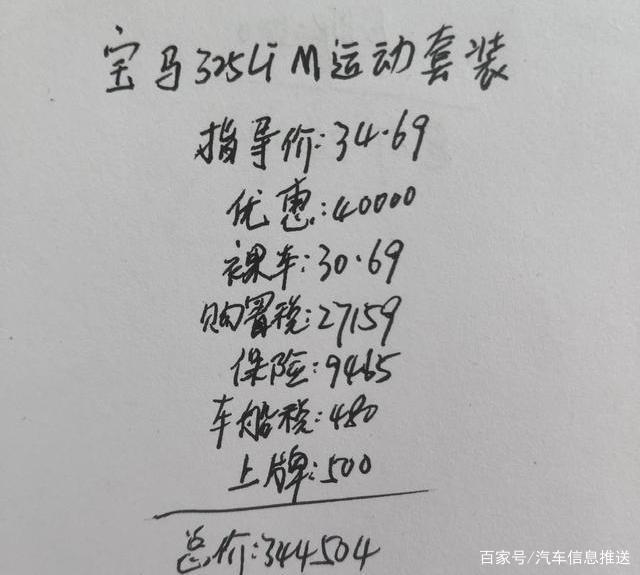 宝马325Li M运动套装
指导价:34.69
优惠:40000
裸车:30.69
购置税:27159
保险:9465
车船税:480
上牌:500
总价:344504
百家号/汽车信息推送